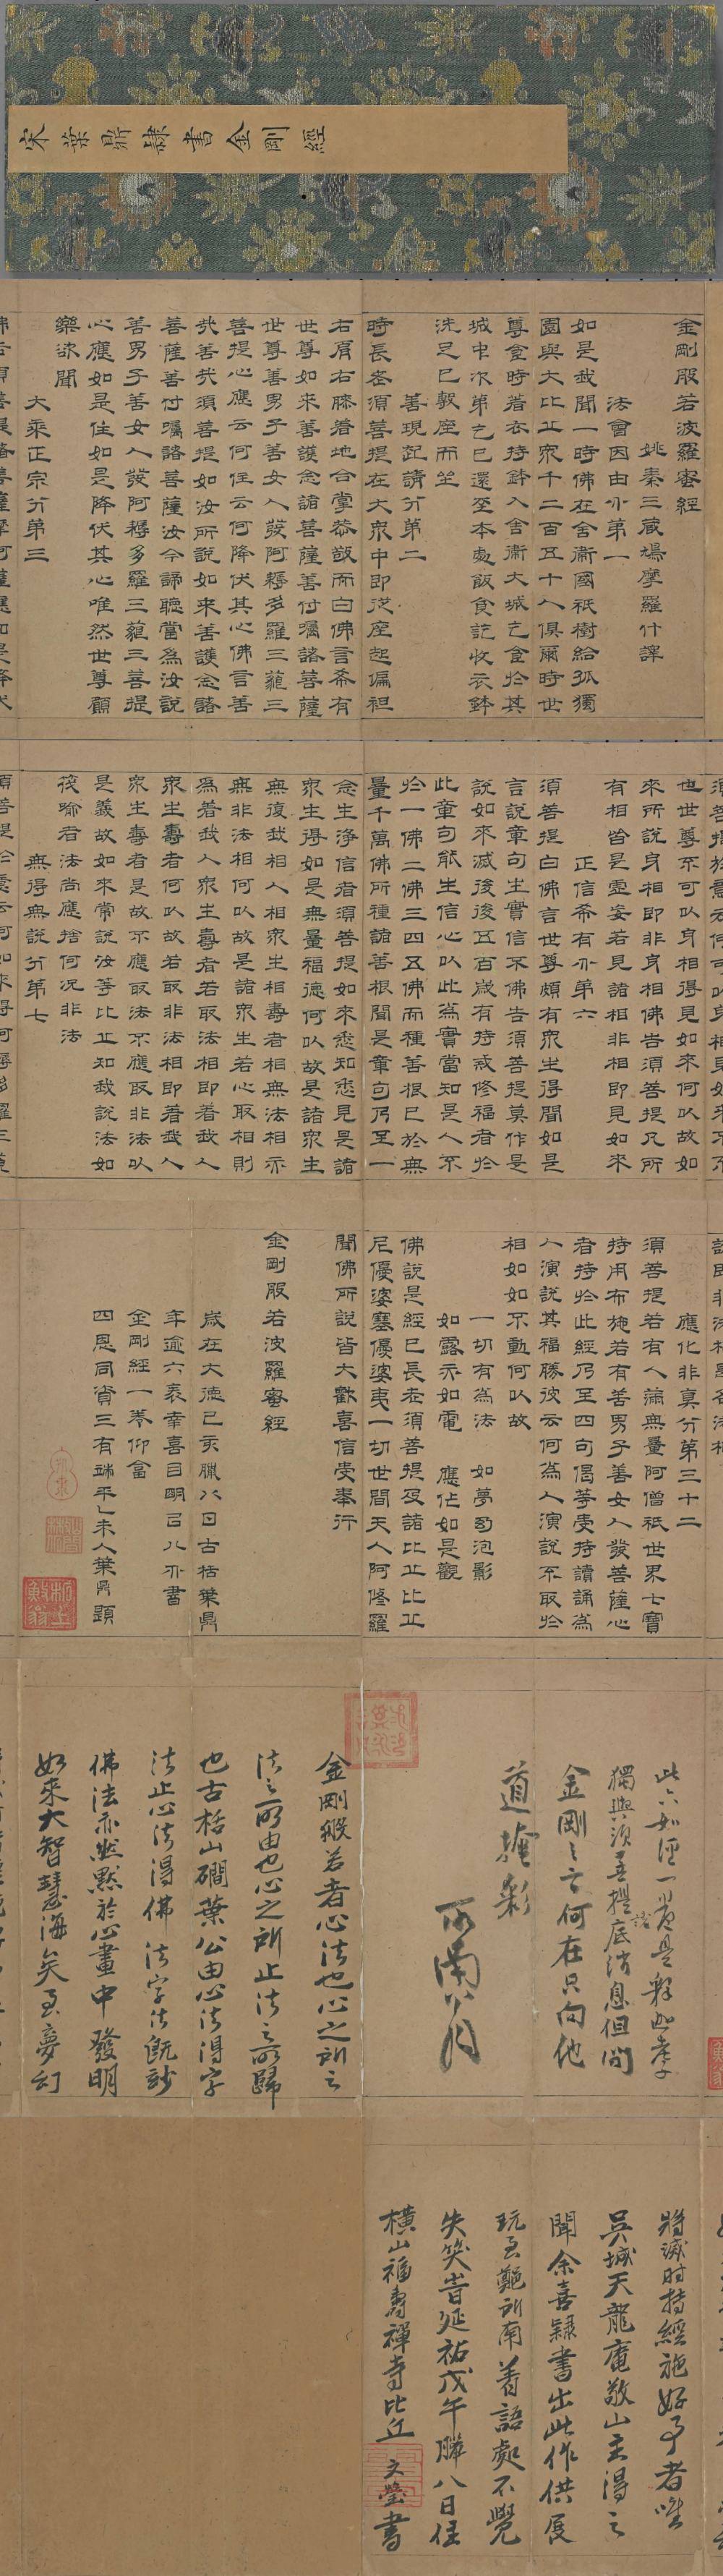 宋葉鼎隸書金剛經
金剛般若波羅蜜經
姚秦三藏鳩摩羅什譯
法會因由分第一
如是我聞一時佛在舍衛國祇樹給孤獨
園與大比丘眾千二百五十人俱爾時世
尊食時着衣持鉢入舍衛大城乞食於其
城中次第乞已還至本處飯食訖收衣鉢
洗足已敷座而坐
善現起請分第二
時長老須菩提在大眾中即從座起偏袒
右肩右膝着地合掌恭敬而白佛言希有
世尊如來善護念諸菩薩善付囑諸菩薩
世尊善男子善女人發阿耨多羅三藐三
菩提心應云何住云何降伏其心佛言善
哉善哉須菩提如汝所說如來善護念諸
菩薩善付囑諸菩薩汝今諦聽當為汝說
善男子善女人發阿耨多羅三藐三菩提
心應如是住如是降伏其心唯然世尊願
樂欲聞
大乘正宗分第三
佛告須菩提諸菩薩摩訶薩應如是降伏
須菩提於意云何可以身相見如來不不
也世尊不可以身相得見如來何以故如
來所說身相即非身相佛告須菩提凡所
有相皆是虛妄若見諸相非相即見如來
正信希有分第六
須菩提白佛言世尊頗有眾生得聞如是
言說章句生實信不佛告須菩提莫作是
說如來滅後後五百歲有持戒修福者於
此章句能生信心以此為實當知是人不
於一佛二佛三四五佛而種善根已於無
量千萬佛所種諸善根聞是章句乃至一
念生淨信者須菩提如來悉知悉見是諸
眾生得如是無量福德何以故是諸眾生
無復我相人相眾生相壽者相無法相亦
無非法相何以故是諸眾生若心取相則
為着我人眾生壽者若取法相即着我人
眾生壽者何以故若取非法相即着我人
眾生壽者是故不應取法不應取非法以
是義故如來常說汝等比丘知我說法如
筏喻者法尚應捨何況非法
無得無說分第七
須菩提於意云何如來得阿耨多羅三藐
說即非法相是名法相
應化非真分第三十二
須菩提若有人滿無量阿僧祇世界七寶
持用布施若有善男子善女人發菩薩心
者持於此經乃至四句偈等受持讀誦為
人演說其福勝彼云何為人演說不取於
相如如不動何以故
一切有為法　如夢幻泡影
如露亦如電　應作如是觀
佛說是經已長老須菩提及諸比丘比丘
尼優婆塞優婆夷一切世間天人阿修羅
聞佛所說皆大歡喜信受奉行
金剛般若波羅蜜經
歲在大德己亥臘八日古括葉鼎
年逾六袠幸喜目明已八分書
金剛經一卷仰荅
四恩同資三有端平乙未人葉鼎題
此六如經一卷是釋迦老子
獨與須菩提底消息但問
金剛之言何在只向他
道掩彩
所南八月
金剛般若者心法也心之所之
法之所由也心之所止法之所歸
也古栝山磵葉公由心法得字
法止心法得佛法字法既妙
佛法亦默默於心畫中發明
如來大智慧海矣至夢幻
將滅時持經施好事者唯
吳城天龍庵敬山主得之
聞余喜隸書出此作供展
玩至鄭所南著語處不覺
失笑昔延祐戊午臘八日住
橫山福壽禪寺比丘文瑩書